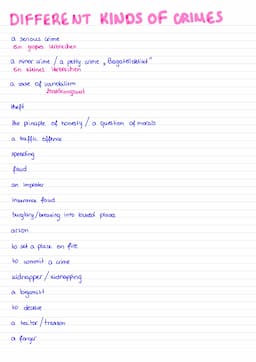 DIFFERENT KINDS OF CRIMES
a serious crime
ein großes Verbrechen
a minor crime / a petty crime „Bagatelldelikt"
ein kleines Verbrechen
a case of vandalism
theft
the principle of honesty / a question of morals
a traffic offence
speeding
fraud
an imposter
insurance fraud
burglary / breaking into places
arson
to set a place on fire
to commit a crime
kidnapper / kidnapping
a bigamist
to deceive
a traitor / treason
a forger